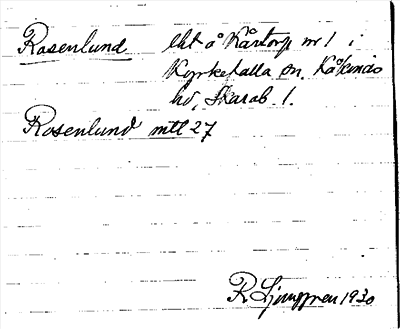 Rosenlund lht å Kårtorp nr 1 i
Kyrkefalla sn, Kåkinds
hd, Skarab. l.
Rosenlund mtl 27
R Ljunggren 1930